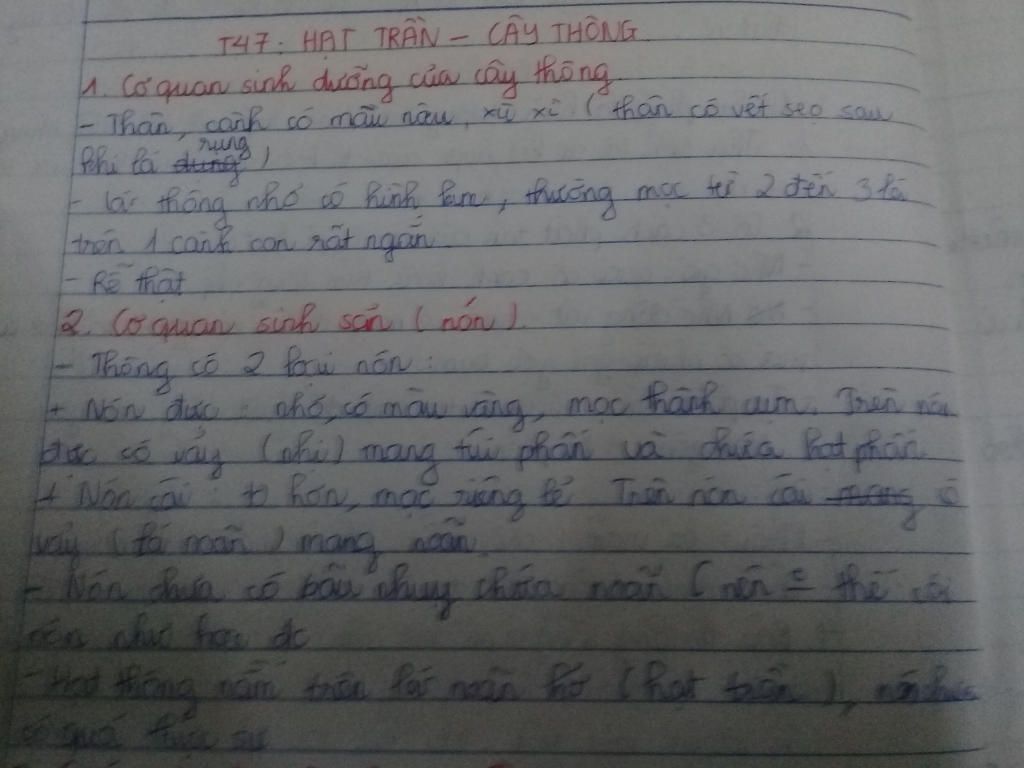 T47: HẠT TRẦN - CÂY THÔNG
1. Cơ quan sinh dưỡng của cây thông
- Thân, cành có màu nâu, xù xì ( thân có vết sẹo sau
khi lá dụng rụng )
- Lá thông nhỏ có hình kim, thường mọc từ 2 đến 3 lá
trên 1 cành con rất ngắn
- Rễ thật
2. Cơ quan sinh sản ( nón )
- Thông có 2 loại nón :
+ Nón đực : nhỏ, có màu vàng, mọc thành cụm. Trên nón
đực có vảy (nhị) mang túi phấn và chứa hạt phấn
+ Nón cái : to hơn, mọc riêng lẻ Trên nón cái mang có
vảy ( lá noãn ) mang noãn
- Nón chưa có bầu nhụy chứa noãn ( nên thể coi
nón như hoa đc
- Hạt thông nằm trên lá noãn hở ( hạt trần ),
có quả thực sự